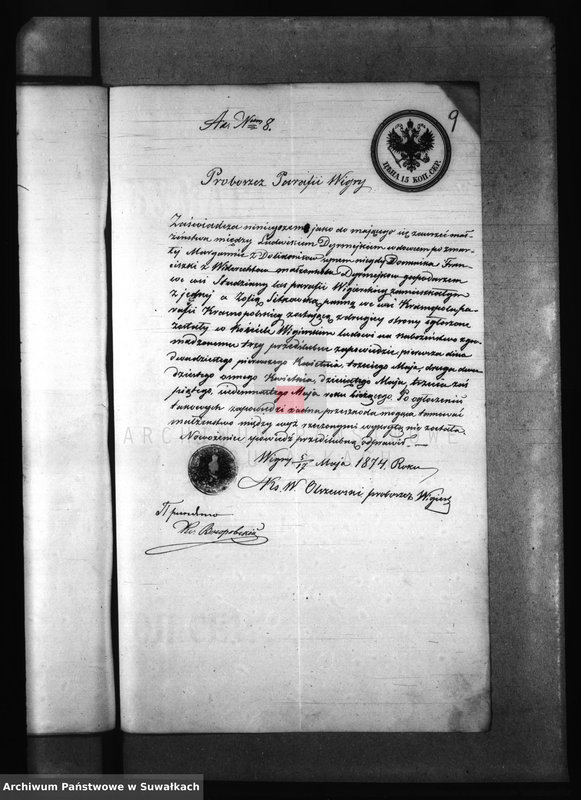 Ad Num 8.
9
ЦѢНА 15 КОП. СЕР.
Proboszcz Parafii Wigry
Zaświadcza niniejszem jako do mającego się zawrzeć mał-
żeństwa między Ludwikiem Dyrmejkiem wdowcem po zmar-
łej Maryannie z synem niegdy Dominika Fran-
ciszki z małżonków Dyrmejków gospodarzem
we wsi Studziany las parafii Wigierskiej zamieszkałym
z jednej a Zofią panną we wsi Krasnopolu pa-
rafii Krasnopolskiej zostającą z drugiej strony ogłoszone
zostały w kościele Wigierskim ludowi na nabożeństwo zgro-
madzonemu trzy przedślubne zapowiedzie pierwsza dnia
dwudziestego pierwszego Kwietnia, trzeciego Maja, druga dwu-
dziestego ósmego Kwietnia, dziesiątego Maja, trzecia zaś
piątego siedemnastego Maja roku bieżącego Po ogłoszeniu
takowych zapowiedzi żadna przeszkoda mogąca tamować
małżeństwo między wyż rzeczonymi wykrytą nie została
Nowożeniec spowiedź przedślubną odprawił. —
Wigry 5/17 Maja 1874 Roku
Ks W Olszewski proboszcz Wigier
Archiwum Państwowe w Suwałkach